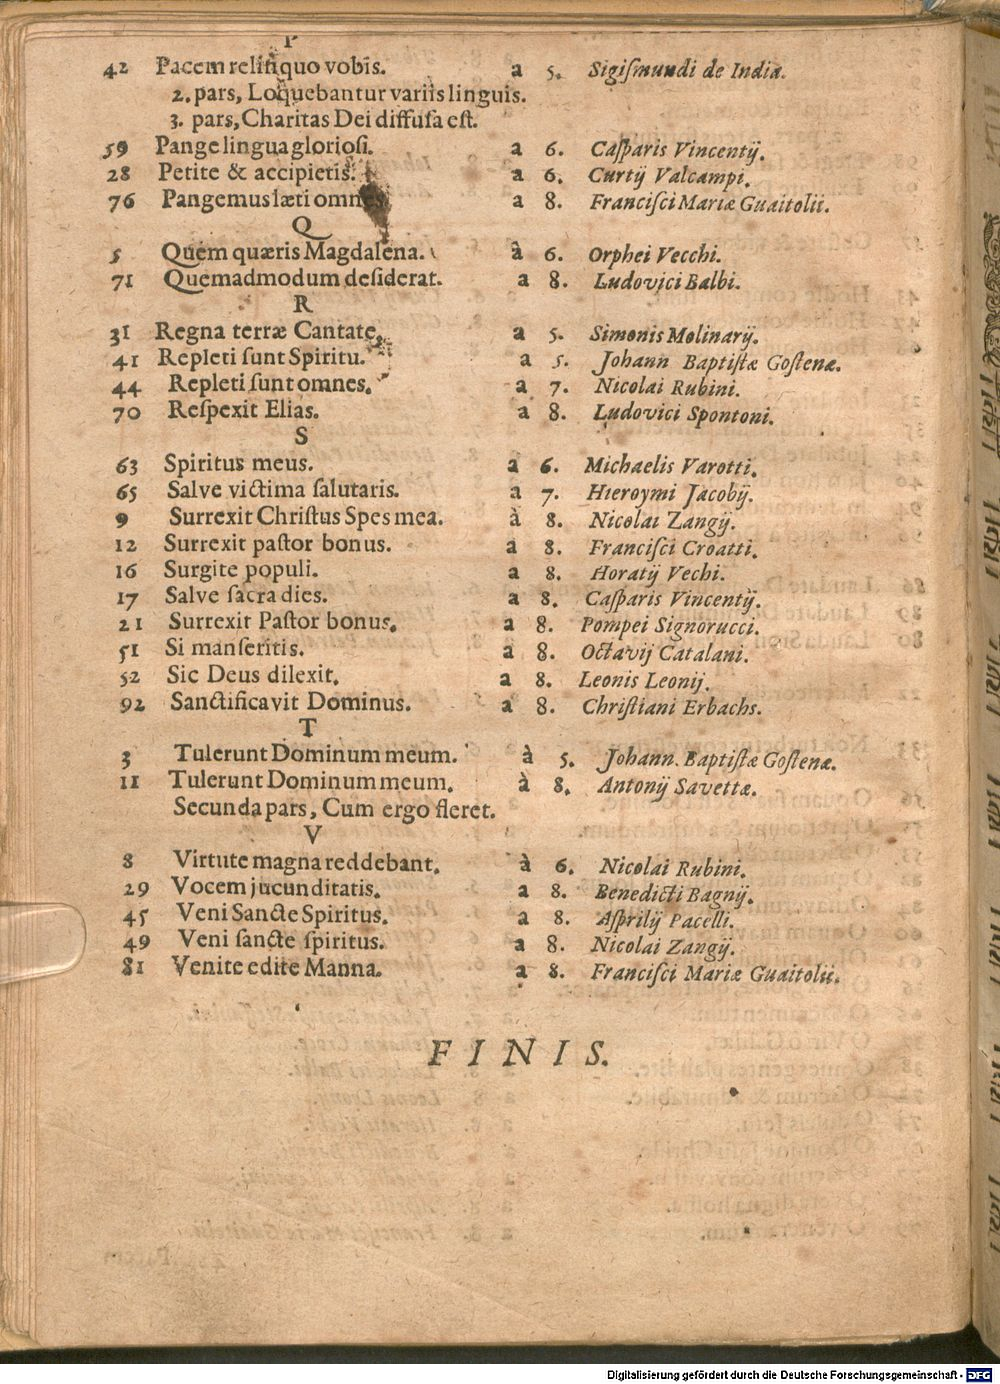 P
42 Pacem relinquo vobis. a 5. Sigiſmundi de Indiæ.
2. pars, Loquebantur variis linguis.
3. pars, Charitas Dei diffuſa eſt.
59 Pange lingua glorioſi. a 6. Caſparis Vincentij.
28 Petite & accipietis. a 6. Curtij Valcampi.
76 Pangemus læti omnes. a 8. Franciſci Mariæ Guaitolii.
Q
5 Quem quæris Magdalena. à 6. Orphei Vecchi.
71 Quemadmodum deſiderat. a 8. Ludovici Balbi.
R
31 Regna terræ Cantate. a 5. Simonis Molinarij.
41 Repleti ſunt Spiritu. a 5. Johann Baptiſtæ Goſtenæ.
44 Repleti ſunt omnes. a 7. Nicolai Rubini.
70 Reſpexit Elias. a 8. Ludovici Spontoni.
S
63 Spiritus meus. a 6. Michaelis Varotti.
65 Salve victima ſalutaris. a 7. Hieroymi Jacobij.
9 Surrexit Chriſtus Spes mea. à 8. Nicolai Zangij.
12 Surrexit paſtor bonus. a 8. Franciſci Croatti.
16 Surgite populi. a 8. Horatij Vechi.
17 Salve ſacra dies. a 8. Caſparis Vincentij.
21 Surrexit Paſtor bonus. a 8. Pompei Signorucci.
51 Si manſeritis. a 8. Octavij Catalani.
52 Sic Deus dilexit. a 8. Leonis Leonij.
92 Sanctificavit Dominus. a 8. Chriſtiani Erbachs.
T
3 Tulerunt Dominum meum. à 5. Johann. Baptiſtæ Goſtenæ.
11 Tulerunt Dominum meum. à 8. Antonij Savettæ.
Secunda pars, Cum ergo fleret.
V
8 Virtute magna reddebant. à 6. Nicolai Rubini.
29 Vocem jucunditatis. a 8. Benedicti Bagnij.
45 Veni Sancte Spiritus. a 8. Aſprilij Pacelli.
49 Veni ſancte ſpiritus. a 8. Nicolai Zangij.
81 Venite edite Manna. a 8. Franciſci Mariæ Guaitolii.
FINIS.
Digitalisierung gefördert durch die Deutsche Forschungsgemeinschaft - DFG